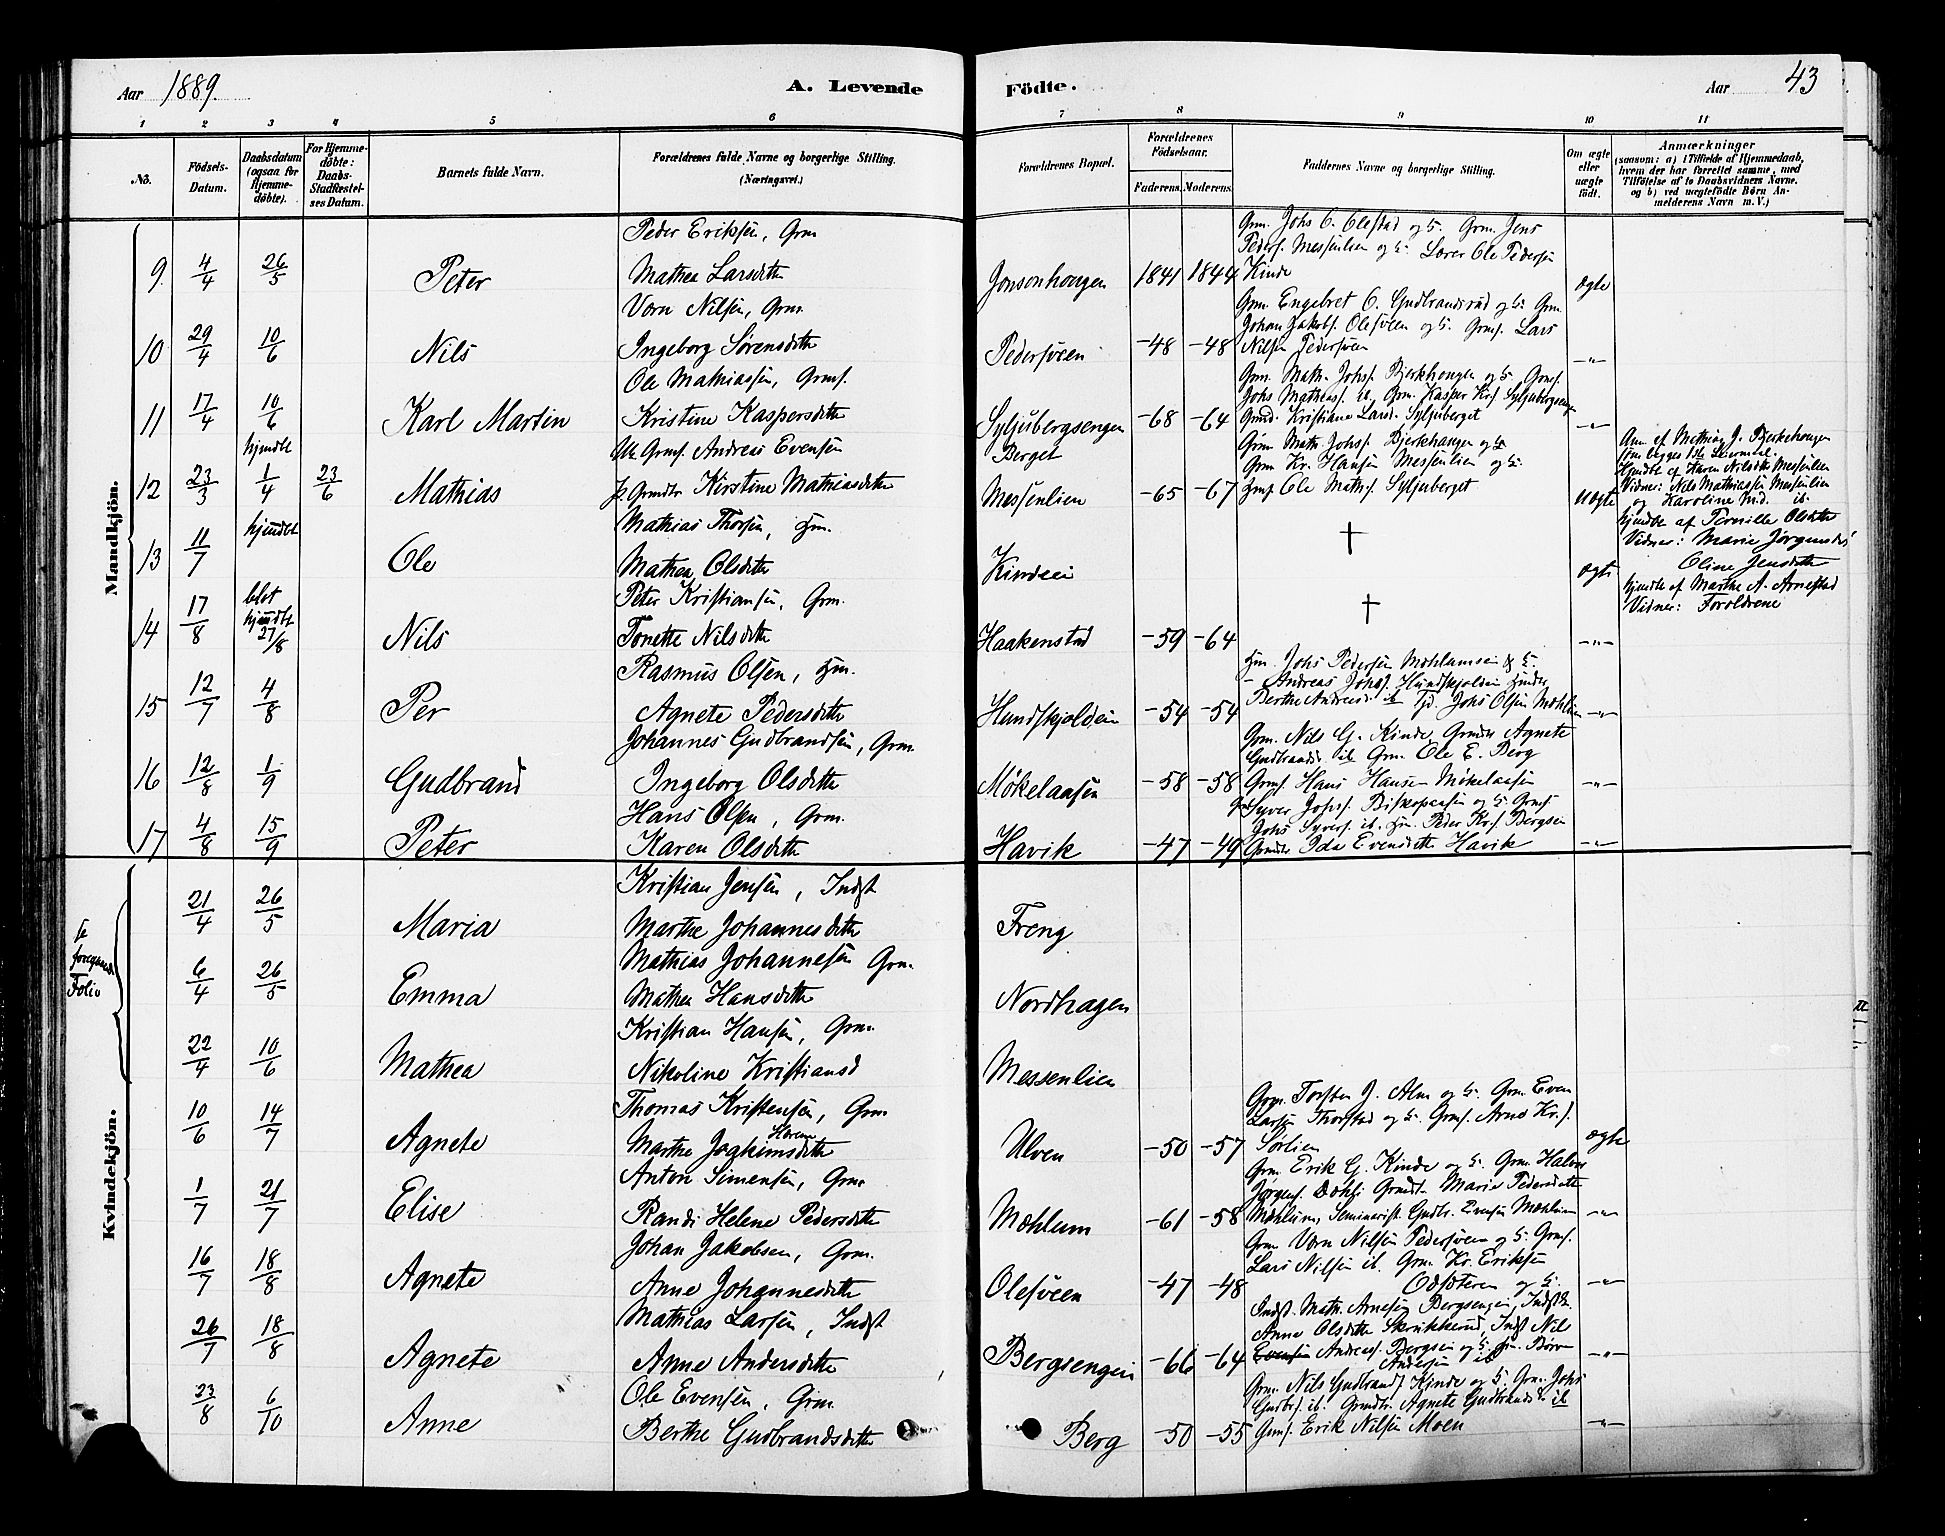 Aar 1889.
A. Levende
Födte.
Aar 43
1 2 3 4 5 6 7 8 9 10 11
No.
Födsels-Datum.
Daabsdatum (ogsaa for Hjemmedöbte).
For Hjemmedöbte: Daabs-Stadfæstelses Datum.
Barnets fulde Navn.
Forældrenes fulde Navne og borgerlige Stilling. (Næringsvei.)
Forældrenes Bopæl.
Forældrenes Födselsaar.
Faderens. Moderens.
Faddernes Navne og borgerlige Stilling.
Om ægte eller uægte født.
Anmærkninger
(saasom: a) i Tilfælde af Hjemmedaab, hvem der har forrettet samme, med Tilföielse af to Daabsvidners Navne, og b) ved uægtefödte Børn Anmelderens Navn m. V.)
Mandkjön.
Peder Eriksen, Grm
9 4/4 26/5 Peter Mathea Larsdtr Jonsonhougen 1841 1844 ægte
Grm. Johs O. Olestad og h. Grm. Jens
Peders. Messenlien og h. Lærer Ole Pedersen
Kinde
Vorn Nilsen, Grm.
10 29/4 10/6 Nils Ingeborg Sørensdtr Pedersveen -48 -48 -"-
Grm. Engebret O. Gudbrandsrud og h. Grm.
Johan Jakobs. Olesveen og h. Grms. Lars
Nilsen Pedersveen
Ole Mathiassen, Grms.
11 17/4 10/6 Karl Martin Kristine Kaspersdtr Syljubergsengen -68 -64 -"-
Grm. Math. Johs. Bjerkhougen og h. Grms.
Johs Mathias. ib. Grm. Kasper Kr. Syljubergseng
Grmd. Kristiane Larsd. Syljuberget
Uk Grms. Andreas Evensen Berget
12 23/3 hjmdbt 1/4 23/6 Mathias p. Grmdtr Kirstine Mathiasdtr Messenlien -65 -67 Uægte
Grm Math. Johs. Bjerkhaugen og h
Grm Kr. Hansen Messenlien og h.
Ole Maths. Syljuberget
Anm. af Mathias J. Bjerkehougen
som begges 1ste Leiermaal.
Hjmdbt af Karen Nilsdtr Messenlien
Vidner: Nils Mathiassen Messenlien
og Karoline M.d. ib.
Mathias Thorsen, Hm.
13 11/7 hjmdbt Ole Mathea Olsdtr Kindsei † ægte
hjmdbt af Pernille Olsdtr
Vidner: Marie Jørgensd.
Oline Jensdtr
Peter Kristiansen, Grm.
14 17/8 blot hjmdbt 27/8 Nils Tonette Nilsdtr Haakenstad -59 -64 † -"-
hjmdbt af Marthe A. Arnestad
Vidner: Foroldrene
Rasmus Olsen, Hm.
15 12/7 4/8 Per Agnete Pedersdtr Hundskjoldein -54 -54 -"-
Hm. Johs Pedersen Mæhlumsein & h.
- Andreas Johs. Hundskjoldein
Berthe Andreasd. ib Johs Olsen Mæhlum
Johannes Gudbrandsen, Grm.
16 12/8 1/9 Gudbrand Ingeborg Olsdtr Møkelaasen -58 -58 -"-
Grm. Nils G. Kinde, Grmdtr Agnete
Gudbrandsd. ib Grm. Ole E. Berg
Grms. Hans Hansen Møkelaasen
Hans Olsen, Grm.
17 4/8 15/9 Peter Karen Olsdtr Havik -47 -49 -"-
Syver Johs. Biskopaasen og h. Grms
Johs Syvers. ib. Hm. Peder Kr. Bergsein
Grmdtr Ida Evensdtr Havik
Kvindekjön.
fr foregaaende Folio
Kristian Jensen, Indst
21/4 26/5 Maria Marthe Johannesdtr Freng
Mathias Johannesen Grm.
6/4 26/5 Emma Mathea Hansdtr Nordhagen
Kristian Hansen, Grm.
22/4 10/6 Mathea Nikoline Kristiansd Messenlien
Thomas Kristensen, Grm
10/6 14/7 Agnete Marthe Joakimsdtr Ulven -50 -57 ægte
Grm. Torsten J. Alm og h. Grm. Even
Larsen Thorstad og h. Grms. Arne Kr.
Sørlien
Anton Simensen, Grm
1/7 21/7 Elise Randi Helene Pedersdtr Mæhlum -61 -58 -"-
Grm. Erik G. Kinde og h. Grm. Halvor
Jørgens. Døhli Grmdt. Marie Pedersdtr
Mæhlum, Seminarist Gudbr. Evensen Mæhlum
Johan Jakobsen, Grm.
16/7 18/8 Agnete Anne Johannesdtr Olesveen -47 -48 -"-
Grm Vorn Nilsen Pedersveen og h. Grms.
Lars Nilsen ib. Grm. Kr. Eriksen
Odsæteren og h.
Mathias Larsen, Indst
26/7 18/8 Agnete Anne Andersdtr Bergsengen -66 -64 -"-
Indst. Math. Arnesen Bergsengen, Indst.
Anne Olsdtr Skrukkerud, Indst Nils
Andreas. Bergsein og h.
Andersen ib
Ole Evensen, Grm.
23/8 6/10 Anne Berthe Gudbrandsdtr Berg -50 -55 -"-
Grm. Nils Gudbrands. Kinde og h. Grm. Johs
Gudbrs. ib. Grmdtr. Agnete Gudbrandsd. ib
Grms. Erik Nilsen Moen